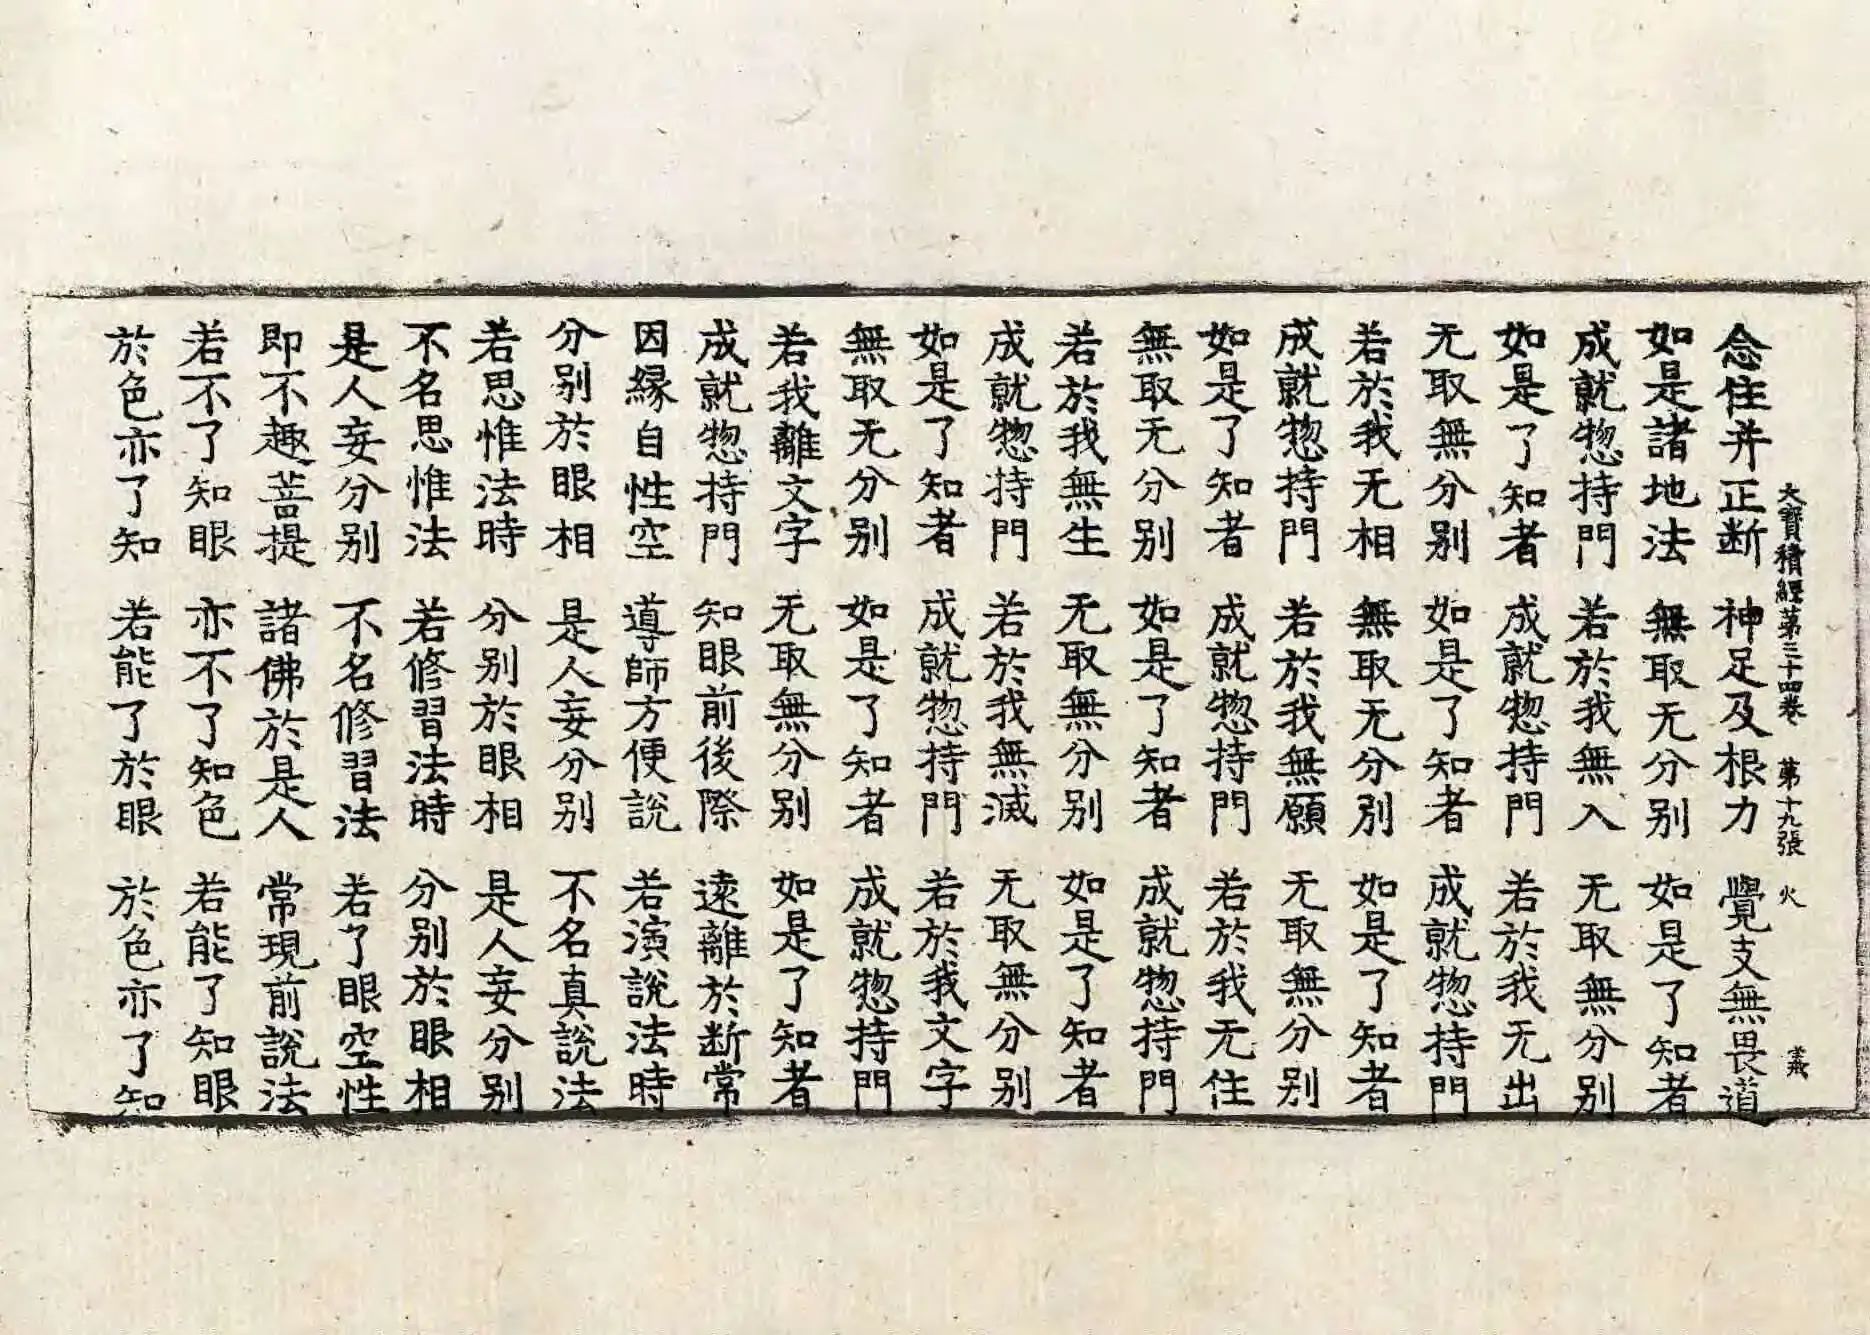 大寶積經第三十四卷 第十九張 火
念住并正断 神足及根力 覺支無畏道
如是諸地法 無取无分别 如是了知者
成就惣持門 若於我無入 无取無分别
如是了知者 成就惣持門 若於我无出
无取無分别 如是了知者 成就惣持門
若於我无相 無取无分别 如是了知者
成就惣持門 若於我無願 无取無分别
如是了知者 成就惣持門 若於我无住
無取无分别 如是了知者 成就惣持門
若於我無生 无取無分别 如是了知者
成就惣持門 若於我無滅 无取無分别
如是了知者 成就惣持門 若於我文字
無取无分别 如是了知者 成就惣持門
若我離文字 无取無分别 如是了知者
成就惣持門 知眼前後際 遠離於断常
因縁自性空 導師方便說 若演說法時
分别於眼相 是人妄分别 不名真說法
若思惟法時 分别於眼相 是人妄分别
不名思惟法 若修習法時 分别於眼相
是人妄分别 不名修習法 若了眼空性
即不趣菩提 諸佛於是人 常現前說法
若不了知眼 亦不了知色 若能了知眼
於色亦了知 若能了於眼 於色亦了知